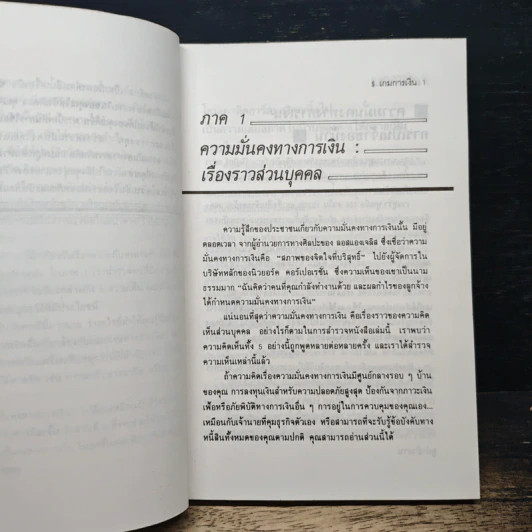 $ เกมการเงิน 1
ภาค 1
ความมั่นคงทางการเงิน :
เรื่องราวส่วนบุคคล
ความรู้สึกของประชาชนเกี่ยวกับความมั่นคงทางการเงินนั้น มีอยู่
ตลอดเวลา จากผู้อำนวยการทางศิลปะของ ลอสแองเจลิส ซึ่งเชื่อว่าความ
มั่นคงทางการเงินคือ "สภาพของจิตใจที่บริสุทธิ์" ไปยังผู้จัดการใน
บริษัทหลักของนิวยอร์ค คอร์เปอเรชั่น ซึ่งความเห็นของเขาเป็นนาม
ธรรมมาก "ฉันคิดว่าคนที่คุณกำลังทำงานด้วย และผลกำไรของลูกจ้าง
ได้กำหนดความมั่นคงทางการเงิน"
แน่นอนที่สุดว่าความมั่นคงทางการเงิน คือเรื่องราวของความคิด
เห็นส่วนบุคคล อย่างไรก็ตามในการสำรวจหนังสือเล่มนี้ เราพบว่า
ความคิดเห็นทั้ง 5 อย่างนี้ถูกพูดหลายต่อหลายครั้ง และเราได้สำรวจ
ความเห็นเหล่านี้แล้ว
ถ้าความคิดเรื่องความมั่นคงทางการเงินมีศูนย์กลางรอบ ๆ บ้าน
ของคุณ การลงทุนเงินสำหรับความปลอดภัยสูงสุด ป้องกันจากภาวะเงิน
เฟ้อหรือภัยพิบัติทางการเงินอื่น ๆ การอยู่ในการควบคุมของคุณเอง...
เหมือนกับเจ้านายที่คุมธุรกิจตัวเอง หรือสามารถที่จะรับรู้ข้อบังคับทาง
หนี้สินทั้งหมดของคุณตามปกติ คุณสามารถอ่านส่วนนี้ได้